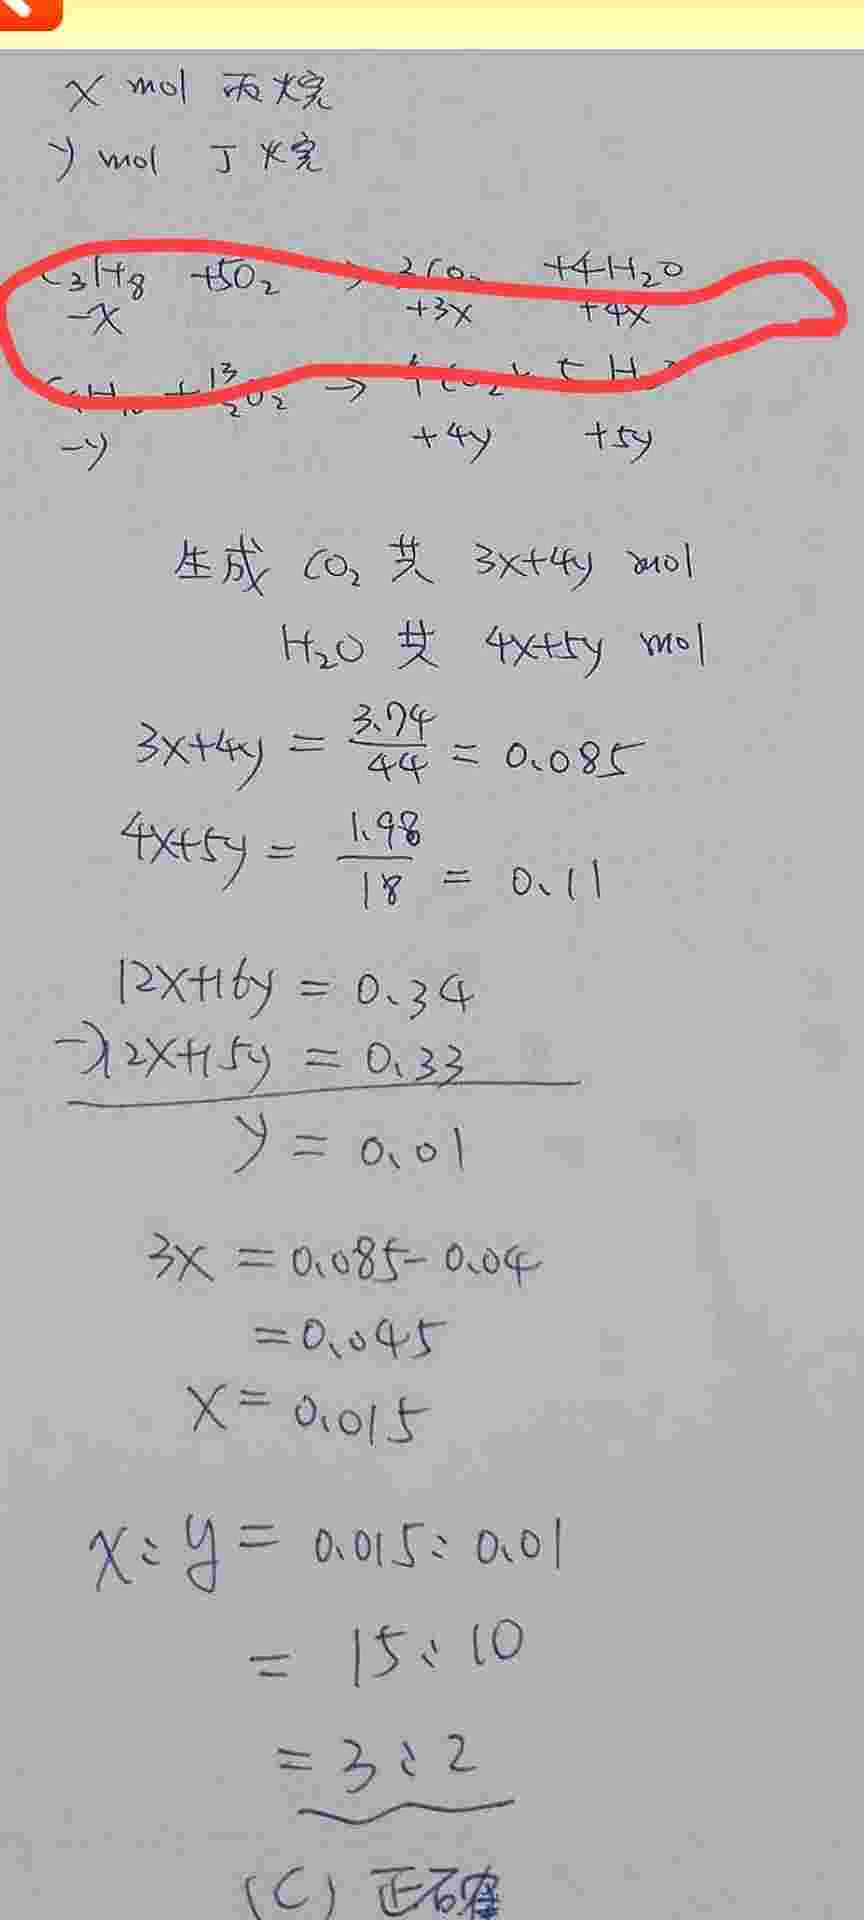 x mol 丙烷
y mol 丁烷
C3H8 +5O2 → 3CO2 +4H2O
-x +3x +4x
+13/2O2 → 4CO2 + 5H
-y +4y +5y
生成 CO2 共 3x+4y mol
H2O 共 4x+5y mol
3x+4y = 3.74/44 = 0.085
4x+5y = 1.98/18 = 0.11
12x+16y = 0.34
-)12x+15y = 0.33
y = 0.01
3x = 0.085-0.04
=0.045
x = 0.015
x:y = 0.015:0.01
= 15:10
= 3:2
(C) 正確